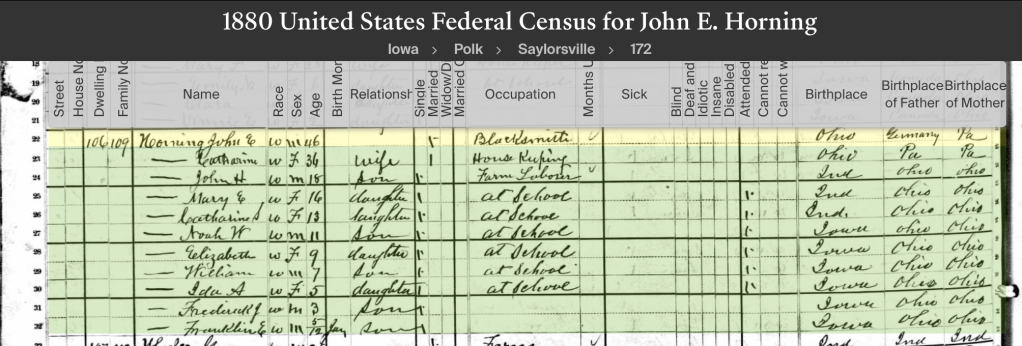 1880 United States Federal Census for John E. Horning
Iowa > Polk > Saylorsville > 172
Street House No Dwelling Family No Name Race Sex Age Birth Mon Relationsh Single Married Widow/D Married Occupation Months U Sick Blind Deaf and Idiotic Insane Disabled Attended Cannot re Cannot w Birthplace Birthplace of Father Birthplace of Mother
18
19
20
21
22 106 109 Horning John E W M 46 1 Blacksmith Ohio Germany Pa
23 — Catharine W F 36 wife 1 House Keeping Ohio Pa Pa
24 — John H W M 18 Son 1 Farm Labour Ind Ohio Ohio
25 — Mary E W F 16 daughter 1 at School 1 Ind Ohio Ohio
26 — Catharine W F 13 daughter 1 at School 1 Ind. Ohio Ohio
27 — Noah W W M 11 Son 1 at School 1 Iowa Ohio Ohio
28 — Elizabeth W F 9 daughter 1 at School 1 Iowa Ohio Ohio
29 — William W M 7 Son 1 at School 1 Iowa Ohio Ohio
30 — Ida A W F 5 daughter 1 at School 1 Iowa Ohio Ohio
31 — Frederick J W M 3 Son 1 Iowa Ohio Ohio
32 — Franklin E W M 5/12 Jan Son 1 Iowa Ohio Ohio
Ind Ind Ind